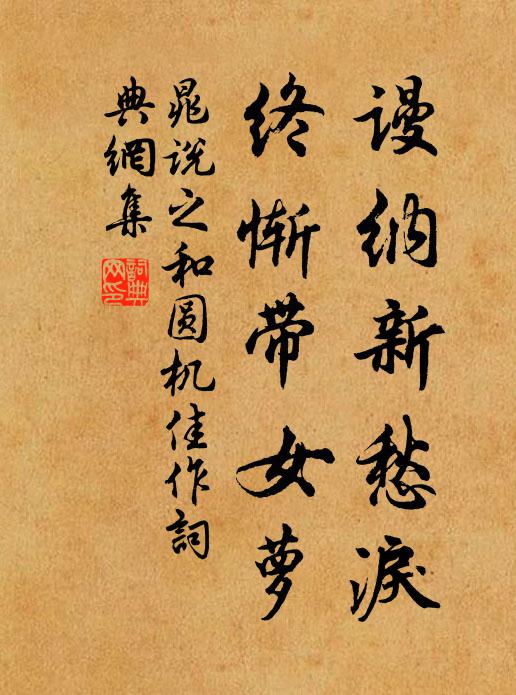 謾纳新愁淚
终惭带女萝
晁说之和圆机佳作詞
典網集
詞典网印